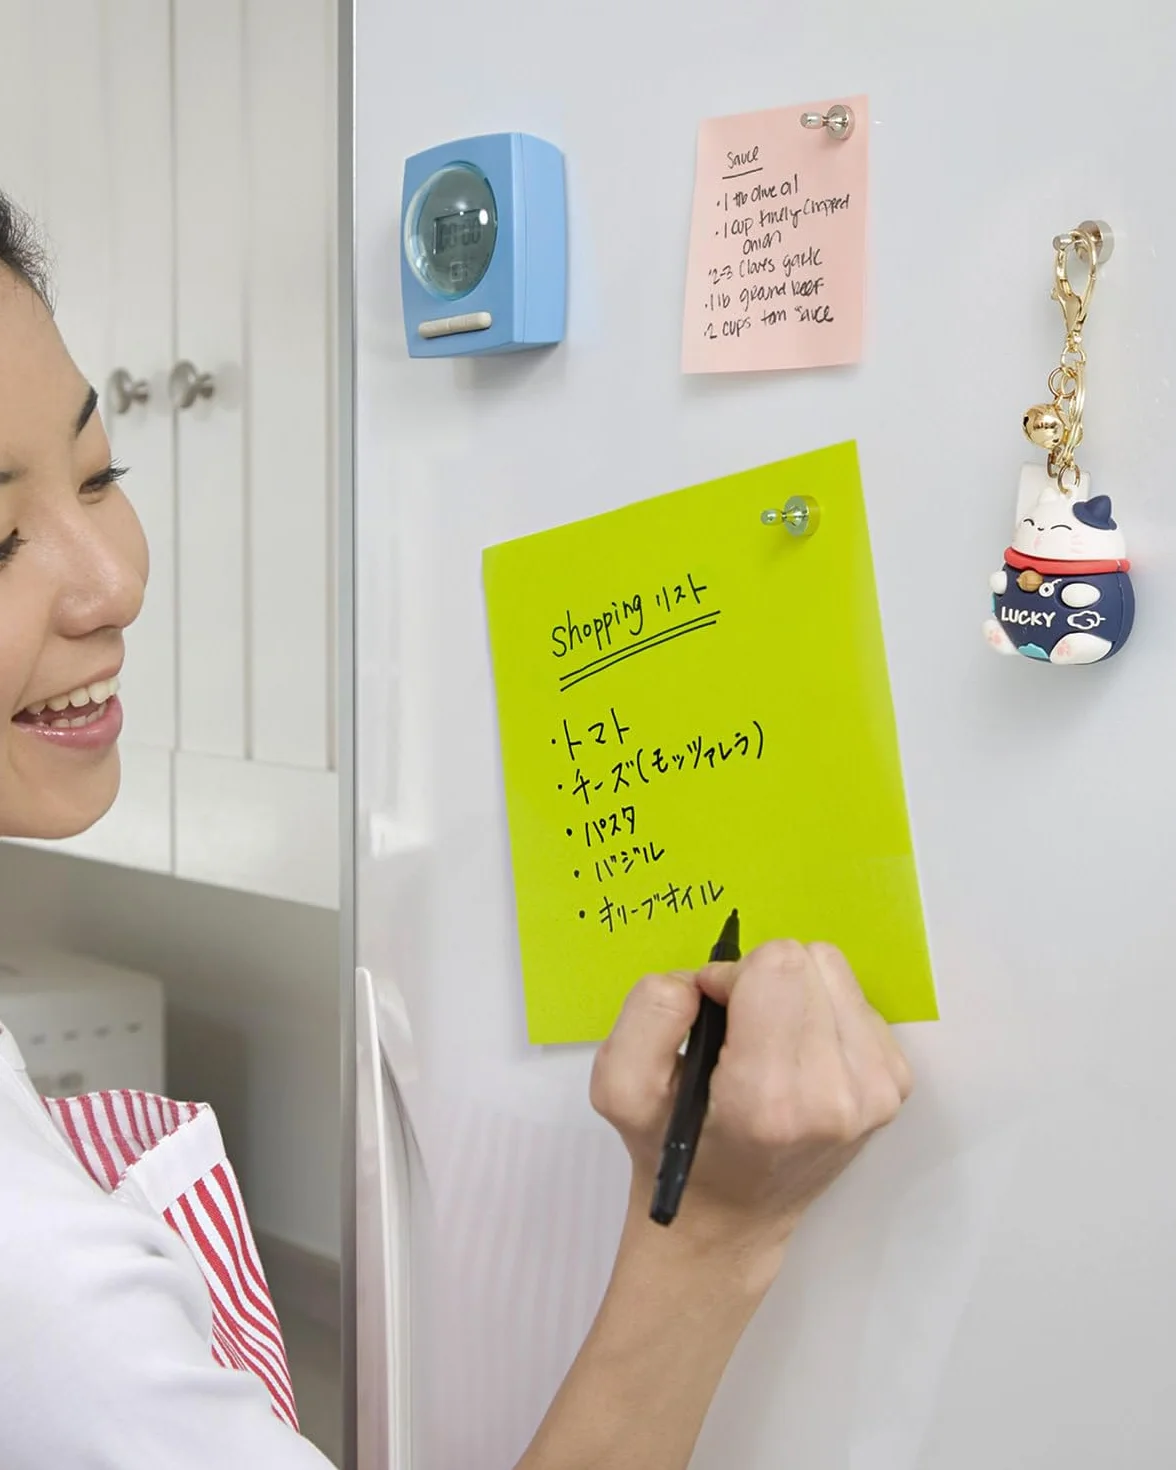 00:00
Sauce
• 1 tb olive oil
• 1 cup finely chopped
onion
• 2-3 cloves garlic
• 1 lb ground beef
• 2 cups tom sauce
Shopping リスト
・トマト
・チーズ(モッツァレラ)
・パスタ
・バジル
・オリーブオイル
LUCKY